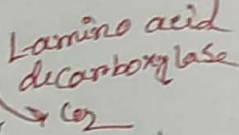 L-amino acid
decarboxylase
CO2